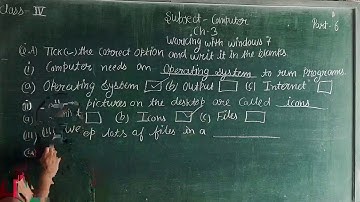 Class - IV
Subject - Computer
Part - 6
Ch - 3
Working with windows 7
Q.1) Tick(✓) the correct option and writ it in the blanks.
(i) Computer needs an Operating system to run programs.
(a) Operating System ☑ (b) Output ☐ (c) Internet ☐
pictures on the desktop are called icons
☐ (b) Icons ☑ (c) Files ☐
(iii) We ep lots of files in a ________